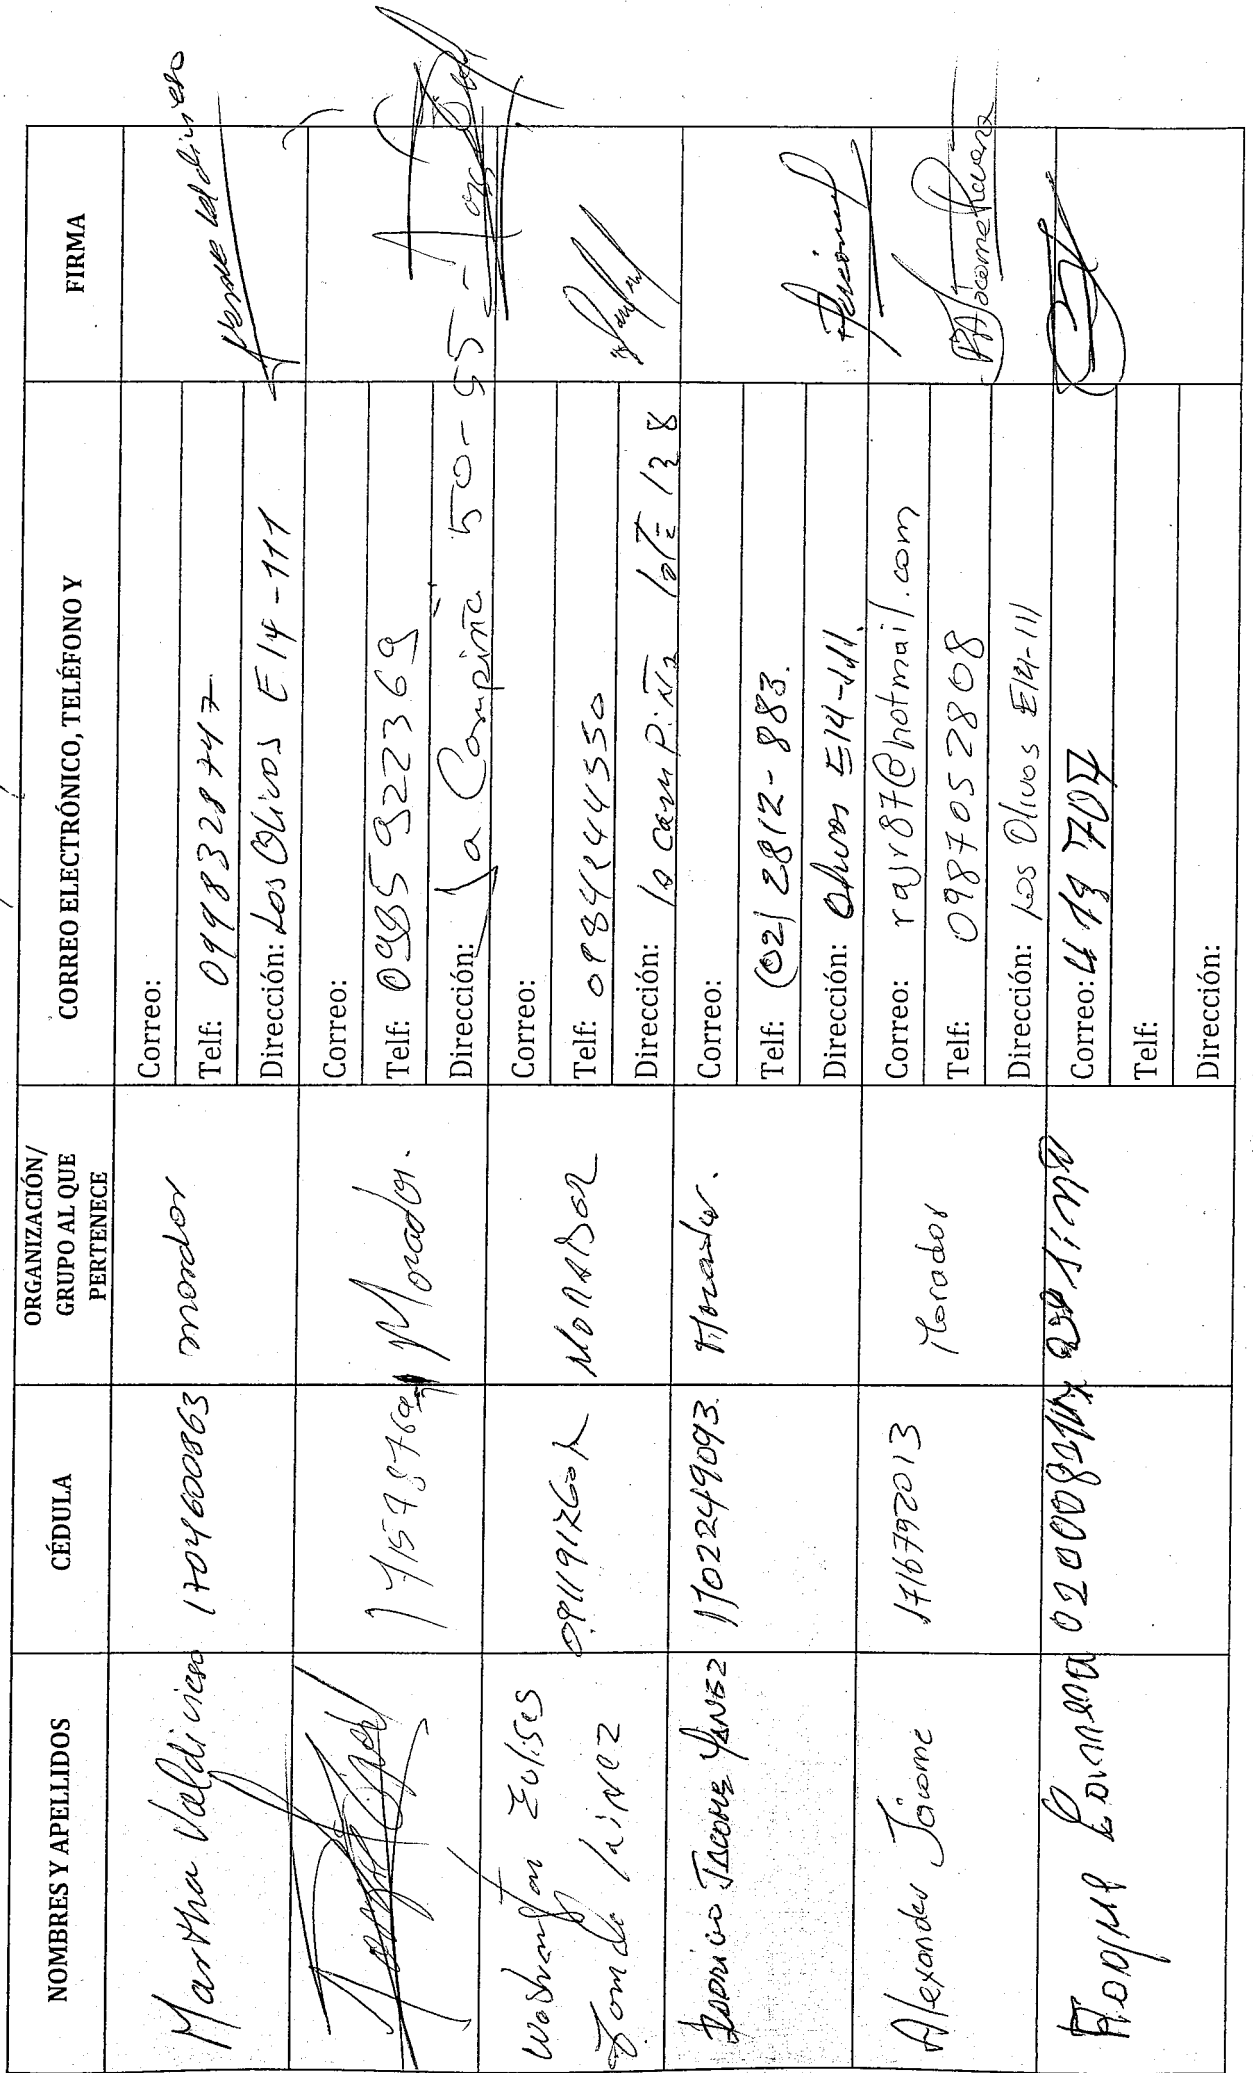 NOMBRES Y APELLIDOS
CÉDULA
ORGANIZACIÓN/
GRUPO AL QUE
PERTENECE
CORREO ELECTRÓNICO, TELÉFONO Y
FIRMA
Martha Valdivieso
1704600863
morador
Correo:
Telf: 0998328747
Dirección: Los Olivos E14-111
Correo:
Telf: 0985922369
Dirección: La Campiña 50-55
Morador.
Washington Eulises
Jomde Lainez
MORADOR
Correo:
Telf: 0984244550
Dirección: la Campiña lote 138
Rodrigo JACOME YANEZ
1702249093.
Morador.
Correo:
Telf: (02) 2812-883.
Dirección: Olivos E14-111.
Alexander Jácome
1716792013
Morador
Correo: rajr87@hotmail.com
Telf: 0987052808
Dirección: Los Olivos E14-111
RAJácomeRivera
Correo: 419 707
Telf:
Dirección: